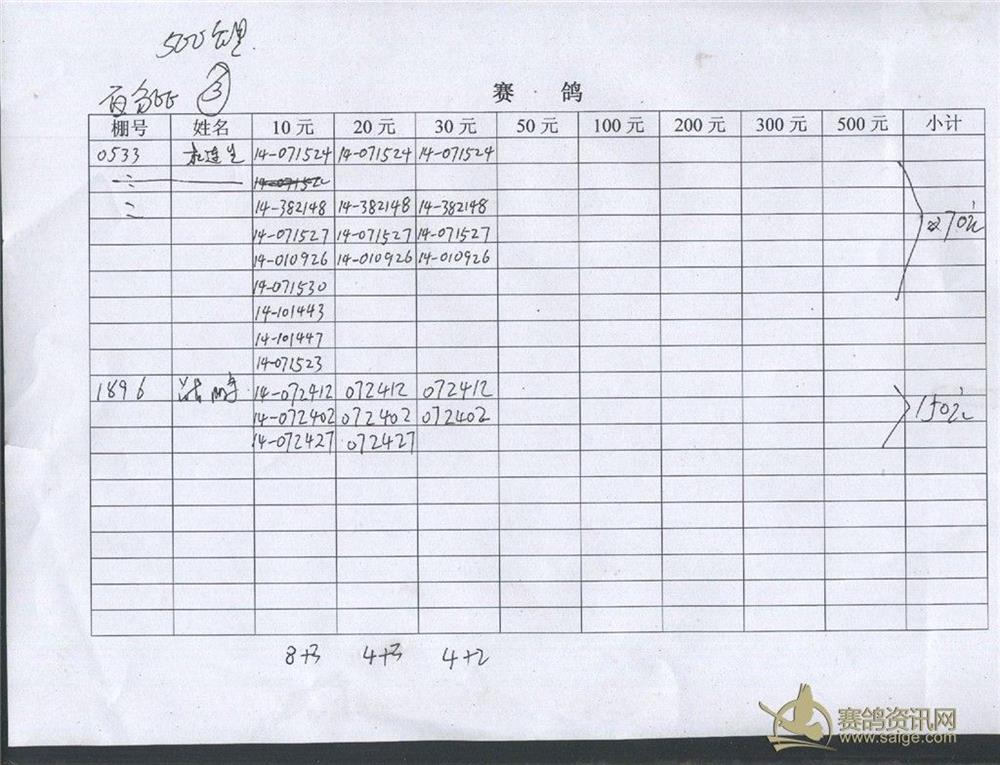 500公里
③
赛 鸽
棚号 姓名 10 元 20 元 30 元 50 元 100 元 200 元 300 元 500 元 小计
0533 14-071524 14-071524 14-071524
14-382148 14-382148 14-382148
14-071527 14-071527 14-071527
270元
14-010926 14-010926 14-010926
14-071530
14-101443
14-101447
14-071523
1896 14-072412 072412 072412
14-072402 072402 072402
150元
14-072427 072427
8+3 4+3 4+2
赛鸽资讯网
www.saige.com